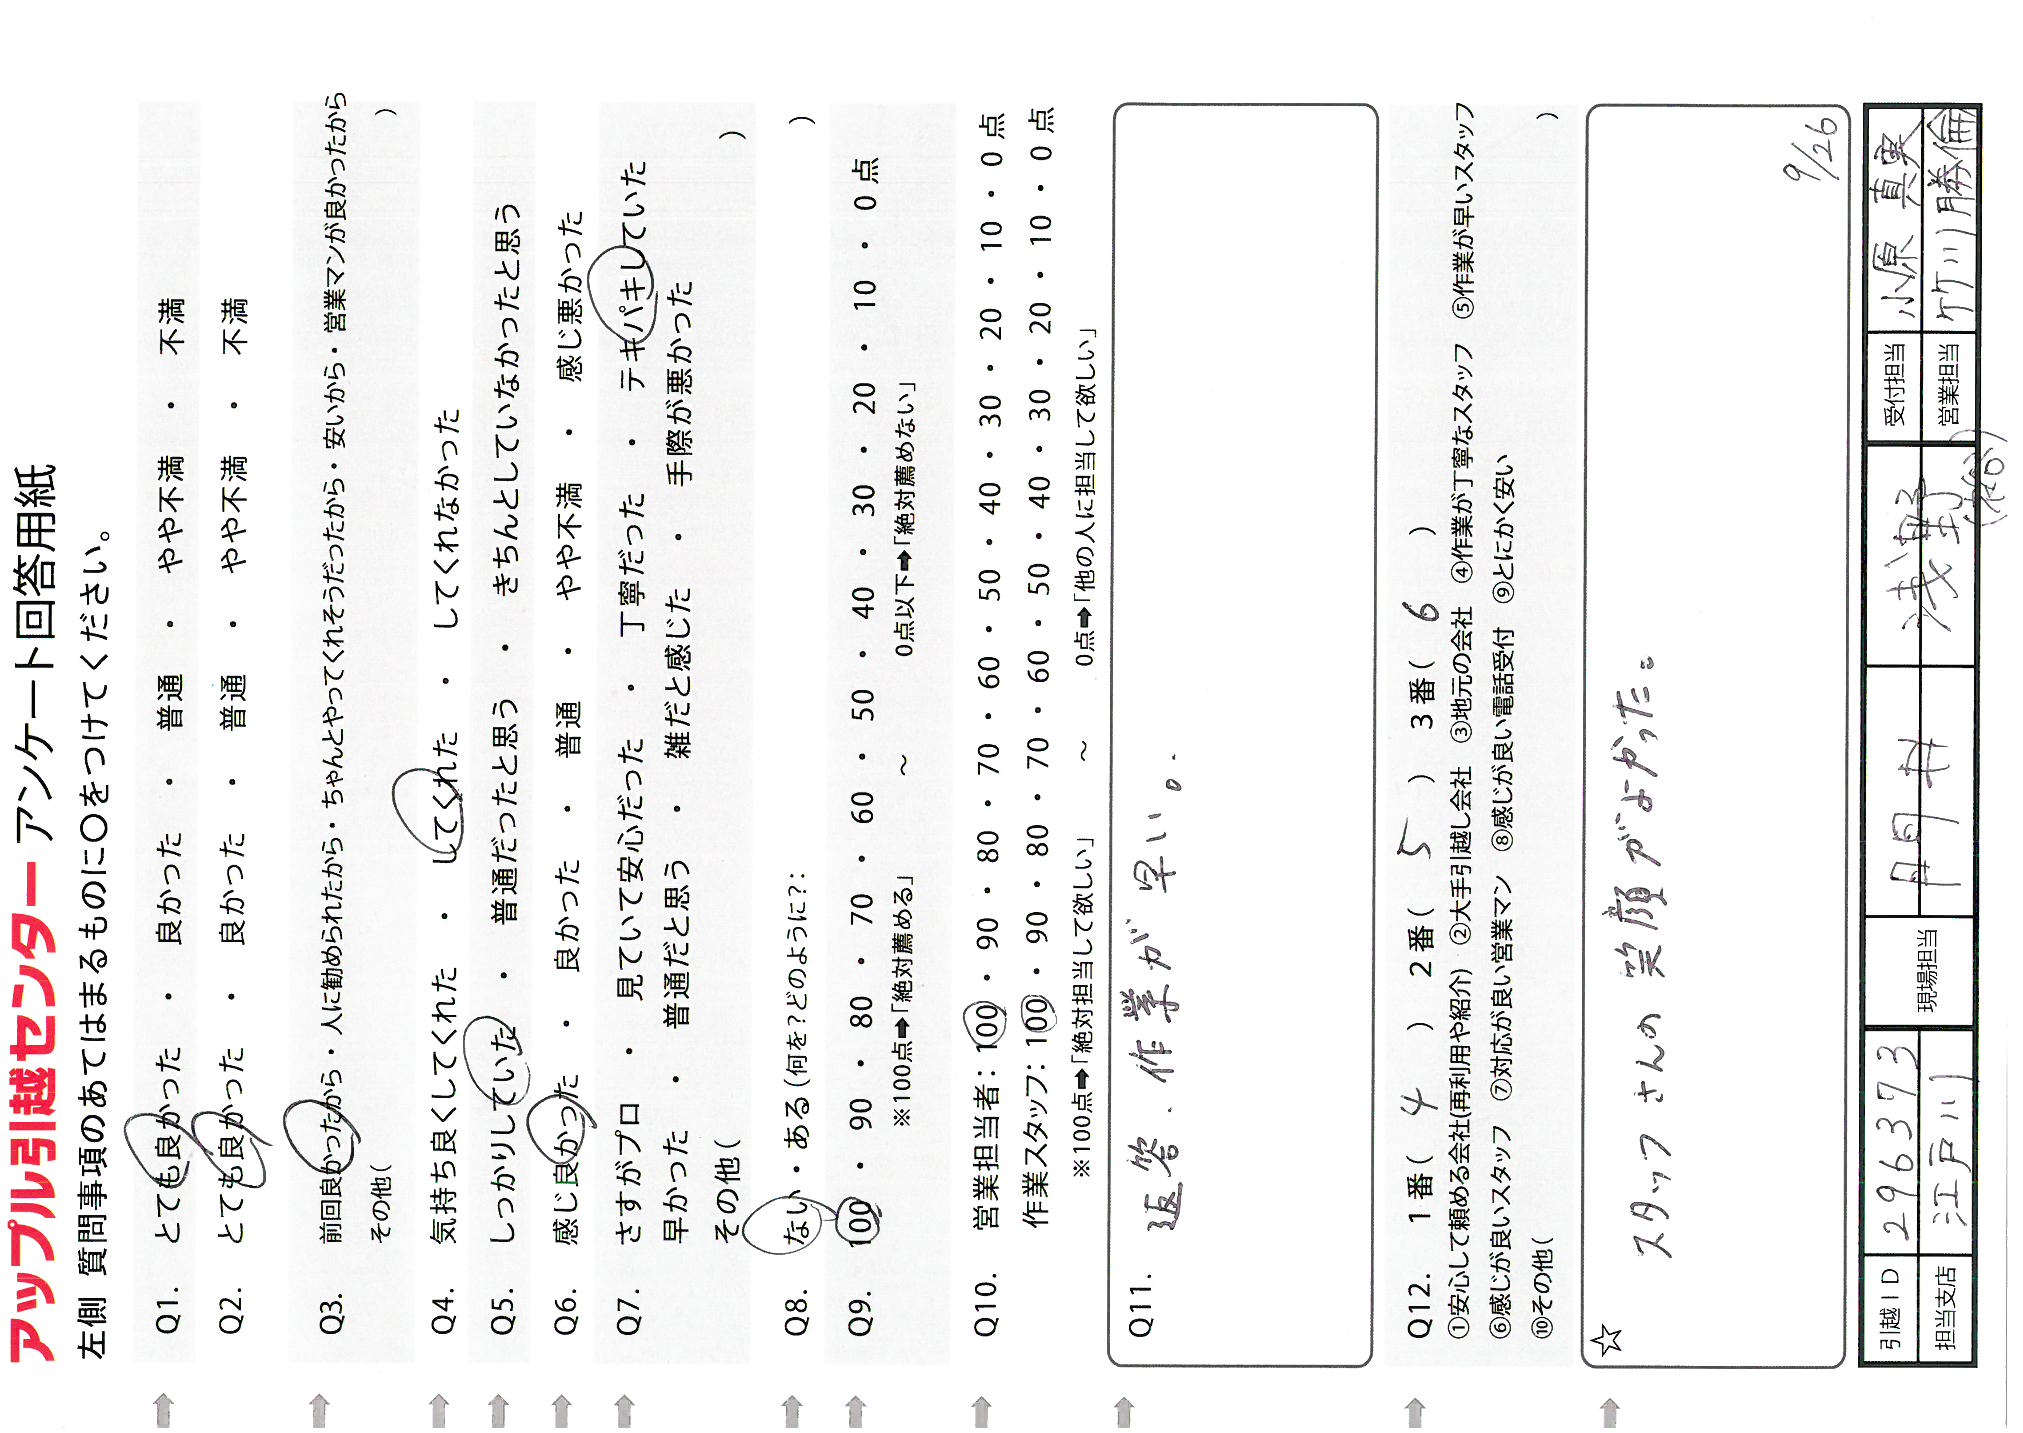 アップル引越センター アンケート回答用紙
左側 質問事項のあてはまるものに〇をつけてください。
Q1. とても良かった ・ 良かった ・ 普通 ・ やや不満 ・ 不満
Q2. とても良かった ・ 良かった ・ 普通 ・ やや不満 ・ 不満
Q3. 前回良かったから・人に勧められたから・ちゃんとやってくれそうだったから・安いから・営業マンが良かったから
その他( )
Q4. 気持ち良くしてくれた ・ してくれた ・ してくれなかった
Q5. しっかりしていた ・ 普通だったと思う ・ きちんとしていなかったと思う
Q6. 感じ良かった ・ 良かった ・ 普通 ・ やや不満 ・ 感じ悪かった
Q7. さすがプロ ・ 見ていて安心だった ・ 丁寧だった ・ テキパキしていた
早かった ・ 普通だと思う ・ 雑だと感じた ・ 手際が悪かった
その他( )
Q8. ない・ある(何を?どのように?: )
Q9. 100 ・ 90 ・ 80 ・ 70 ・ 60 ・ 50 ・ 40 ・ 30 ・ 20 ・ 10 ・ 0点
※100点➡「絶対薦める」 ～ 0点以下➡「絶対薦めない」
Q10. 営業担当者：100 ・ 90 ・ 80 ・ 70 ・ 60 ・ 50 ・ 40 ・ 30 ・ 20 ・ 10 ・ 0点
作業スタッフ：100 ・ 90 ・ 80 ・ 70 ・ 60 ・ 50 ・ 40 ・ 30 ・ 20 ・ 10 ・ 0点
※100点➡「絶対担当して欲しい」 ～ 0点➡「他の人に担当して欲しい」
Q11. 返答、作業が早い。
Q12. 1番( 4 ) 2番( 5 ) 3番( 6 )
①安心して頼める会社(再利用や紹介) ②大手引越し会社 ③地元の会社 ④作業が丁寧なスタッフ ⑤作業が早いスタッフ
⑥感じが良いスタッフ ⑦対応が良い営業マン ⑧感じが良い電話受付 ⑨とにかく安い
⑩その他( )
☆ スタッフさんの笑顔がよかった。
9/26
引越ID 296373 現場担当 丹井 浅野 受付担当 小原 真実
担当支店 江戸川 営業担当 竹川勝倫